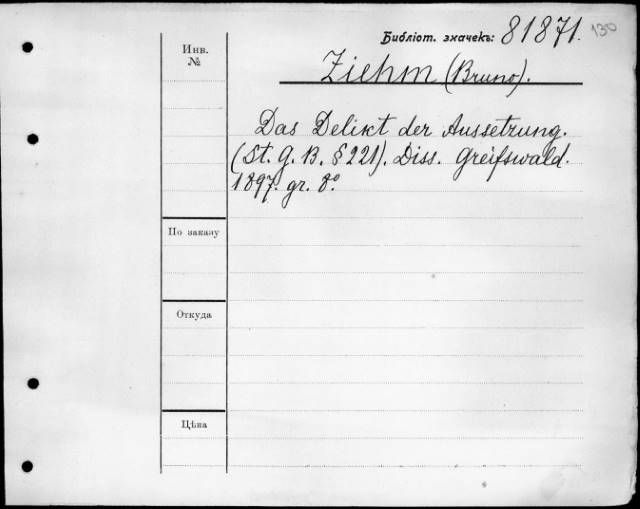 Библіот. значекъ: 81871. 130
Инв. №
Ziehm (Bruno).
Das Delikt der Aussetrung.
(St. G. B. § 221). Diss. Greifswald.
1897. gr. 8º.
По заказу
Откуда
Цѣна